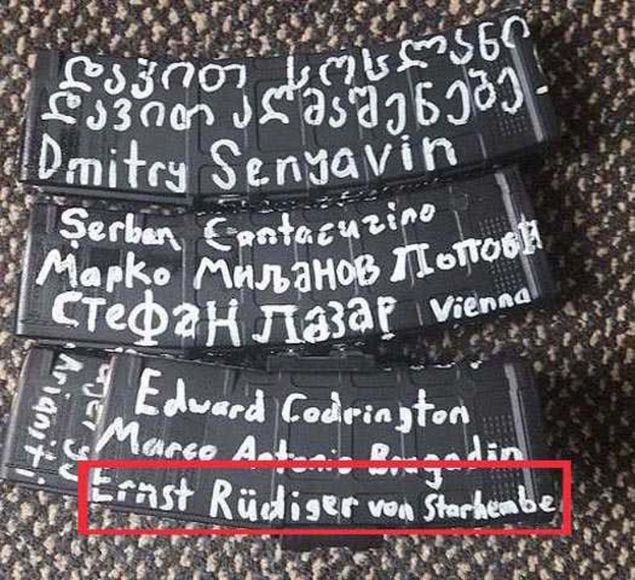 დავით სოსლანი
დავით აღმაშენებე
Dmitry Senyavin
Șerban Cantacuzino
Марко Миљанов Попови
Стефан Лазар Vienna
Edward Codrington
Marco Antonio Bragadin
Ernst Rüdiger von Starhembe
Arianiti